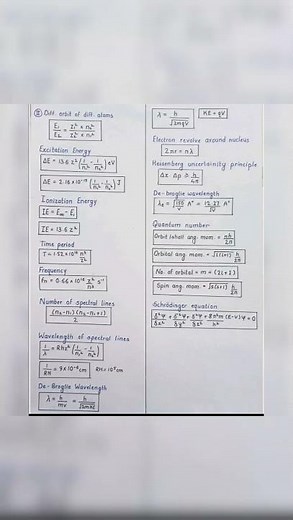 ② Diff. orbit of diff. atoms
E₁/E₂ = Z₁² × n₂² / Z₂² × n₁²
Excitation Energy
ΔE = 13.6 Z² (1/n₁² - 1/n₂²) eV
ΔE = 2.18 × 10⁻¹⁸ (1/n₁² - 1/n₂²) J
Ionization Energy
IE = E∞ - E₁
IE = 13.6 Z²
Time period
T = 1.52 × 10⁻¹⁶ n³/Z²
Frequency
fn = 0.66 × 10¹⁶ Z²/n³ s⁻
Number of spectral lines
(n₂-n₁)(n₂-n₁+1) / 2
Wavelength of spectral lines
1/λ = RHZ² (1/n₁² - 1/n₂²)
1/RH = 9 × 10⁻⁶ cm RH = 10⁷ cm
De-Broglie Wavelength
λ = h/mv = h/√2mKE
λ = h/√2mqV KE = qV
Electron revolve around nucleus
2πr = nλ
Heisenberg uncertainity principle
Δx Δp ≥ h/4π
De-broglie wavelength
λe = √150/V A° = 12.27/√V A°
Quantum number
Orbit ang. mom. = nh/2π
Orbital ang. mom = √l(l+1) h/2π
No. of orbital = m = (2l+1)
Spin ang. mom = √s(s+1) h/2π
Schrödinger equation
δ²Ψ/δx² + δ²Ψ/δy² + δ²Ψ/δz² + 8π²m/h² (E-V)Ψ = 0